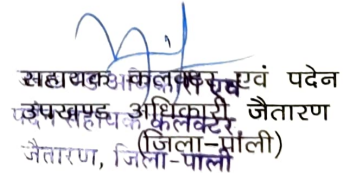 सहायक कलक्टर एवं पदेन
उपखण्ड अधिकारी, जैतारण
(जिला-पाली)
पदेन सहायक कलक्टर
जैतारण, जिला-पाली